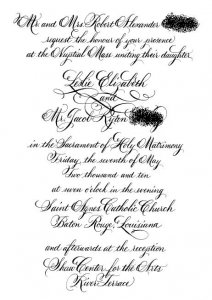 Mr. and Mrs. Robert Alexander
request the honour of your presence
at the Nuptial Mass uniting their daughter
Leslie Elizabeth
and
Mr. Jacob
in the Sacrament of Holy Matrimony
Friday, the seventh of May
Two thousand and ten
at seven o'clock in the evening
Saint Agnes Catholic Church
Baton Rouge, Louisiana
and afterwards at the reception
Shaw Center for the Arts
River Terrace